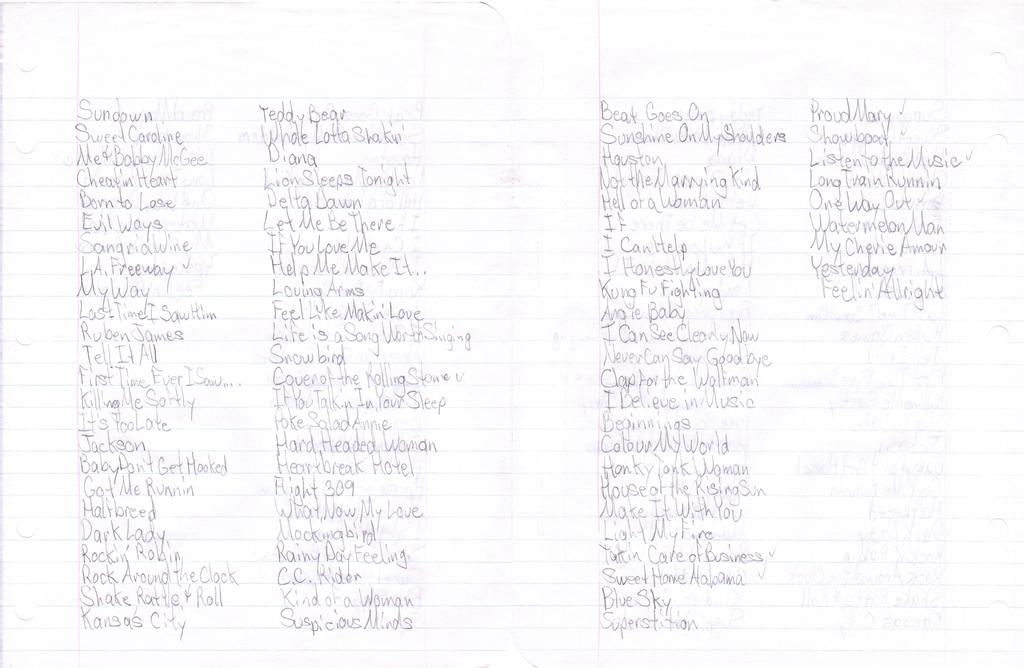 Sundown
Sweet Caroline
Me & Bobby McGee
Cheatin' Heart
Born to Lose
Evil Ways
Sangria Wine
L.A. Freeway ✓
My Way
Last Time I Saw Him
Ruben James
Tell It All
First Time Ever I Saw....
Killing Me Softly
It's Too Late
Jackson
Baby Don't Get Hooked
Got Me Runnin
Halfbreed
Dark Lady
Rockin' Robin
Rock Around the Clock
Shake Rattle & Roll
Kansas City
Teddy Bear
Whole Lotta Shakin'
Diana
Lion Sleeps Tonight
Delta Dawn
Let Me Be There
If You Love Me
Help Me Make It..
Loving Arms
Feel Like Makin' Love
Life is a Song Worth Singing
Snowbird
Cover of the Rolling Stone ✓
If You Talk in In Your Sleep
Poke Salad Annie
Hard Headed Woman
Heartbreak Hotel
Flight 309
What Now My Love
Mockingbird
Rainy Day Feeling
C.C. Rider
Kind of a Woman
Suspicious Minds
Beat Goes On
Sunshine On My Shoulders
Houston
Not the Marrying Kind
Hell of a Woman
If
I Can Help
I Honestly Love You
Kung Fu Fighting
Angie Baby
I Can See Clearly Now
Never Can Say Goodbye
Clap For the Wolfman
I Believe in Music
Beginnings
Colour My World
Honky Tonk Woman
House of the Rising Sun
Make It With You
Light My Fire
Takin Care of Business ✓
Sweet Home Alabama ✓
Blue Sky
Superstition
Proud Mary ✓
Showboat ✓
Listen to the Music ✓
Long Train Runnin
One Way Out ✓
Watermelon Man
My Cherie Amour
Yesterday
Feelin' Alright